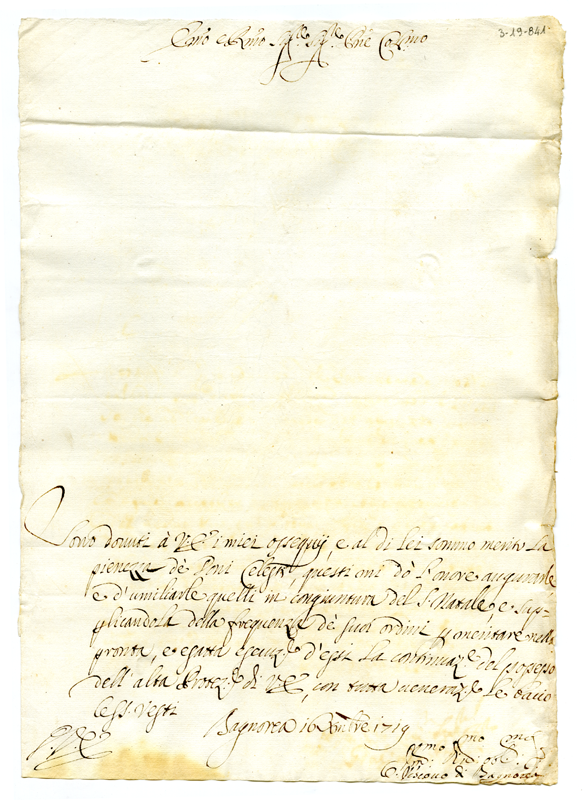 3-19-841
Em̃o e Rm̃o Sig.re Sig.re Pr̃ne Col.mo
Sono dovuti à V.E. i miei ossequij, e al di lei sommo merito la
pienezza de Doni Celesti, questi mi dò l'onore augurarle
e d'umiliarle quelli in congiuntura del S. Natale, e sup-
plicandola della frequenza de suoi ordini p meritare nella
pronta, e esatta esecuz.e d'essi la continuaz.e del possesso
dell'alta Protez.e di V.E., con tutta veneraz.e le bacio
le S. Vesti
Bagnorea 16 Xmbre 1719
Vescovo di Bagnorea